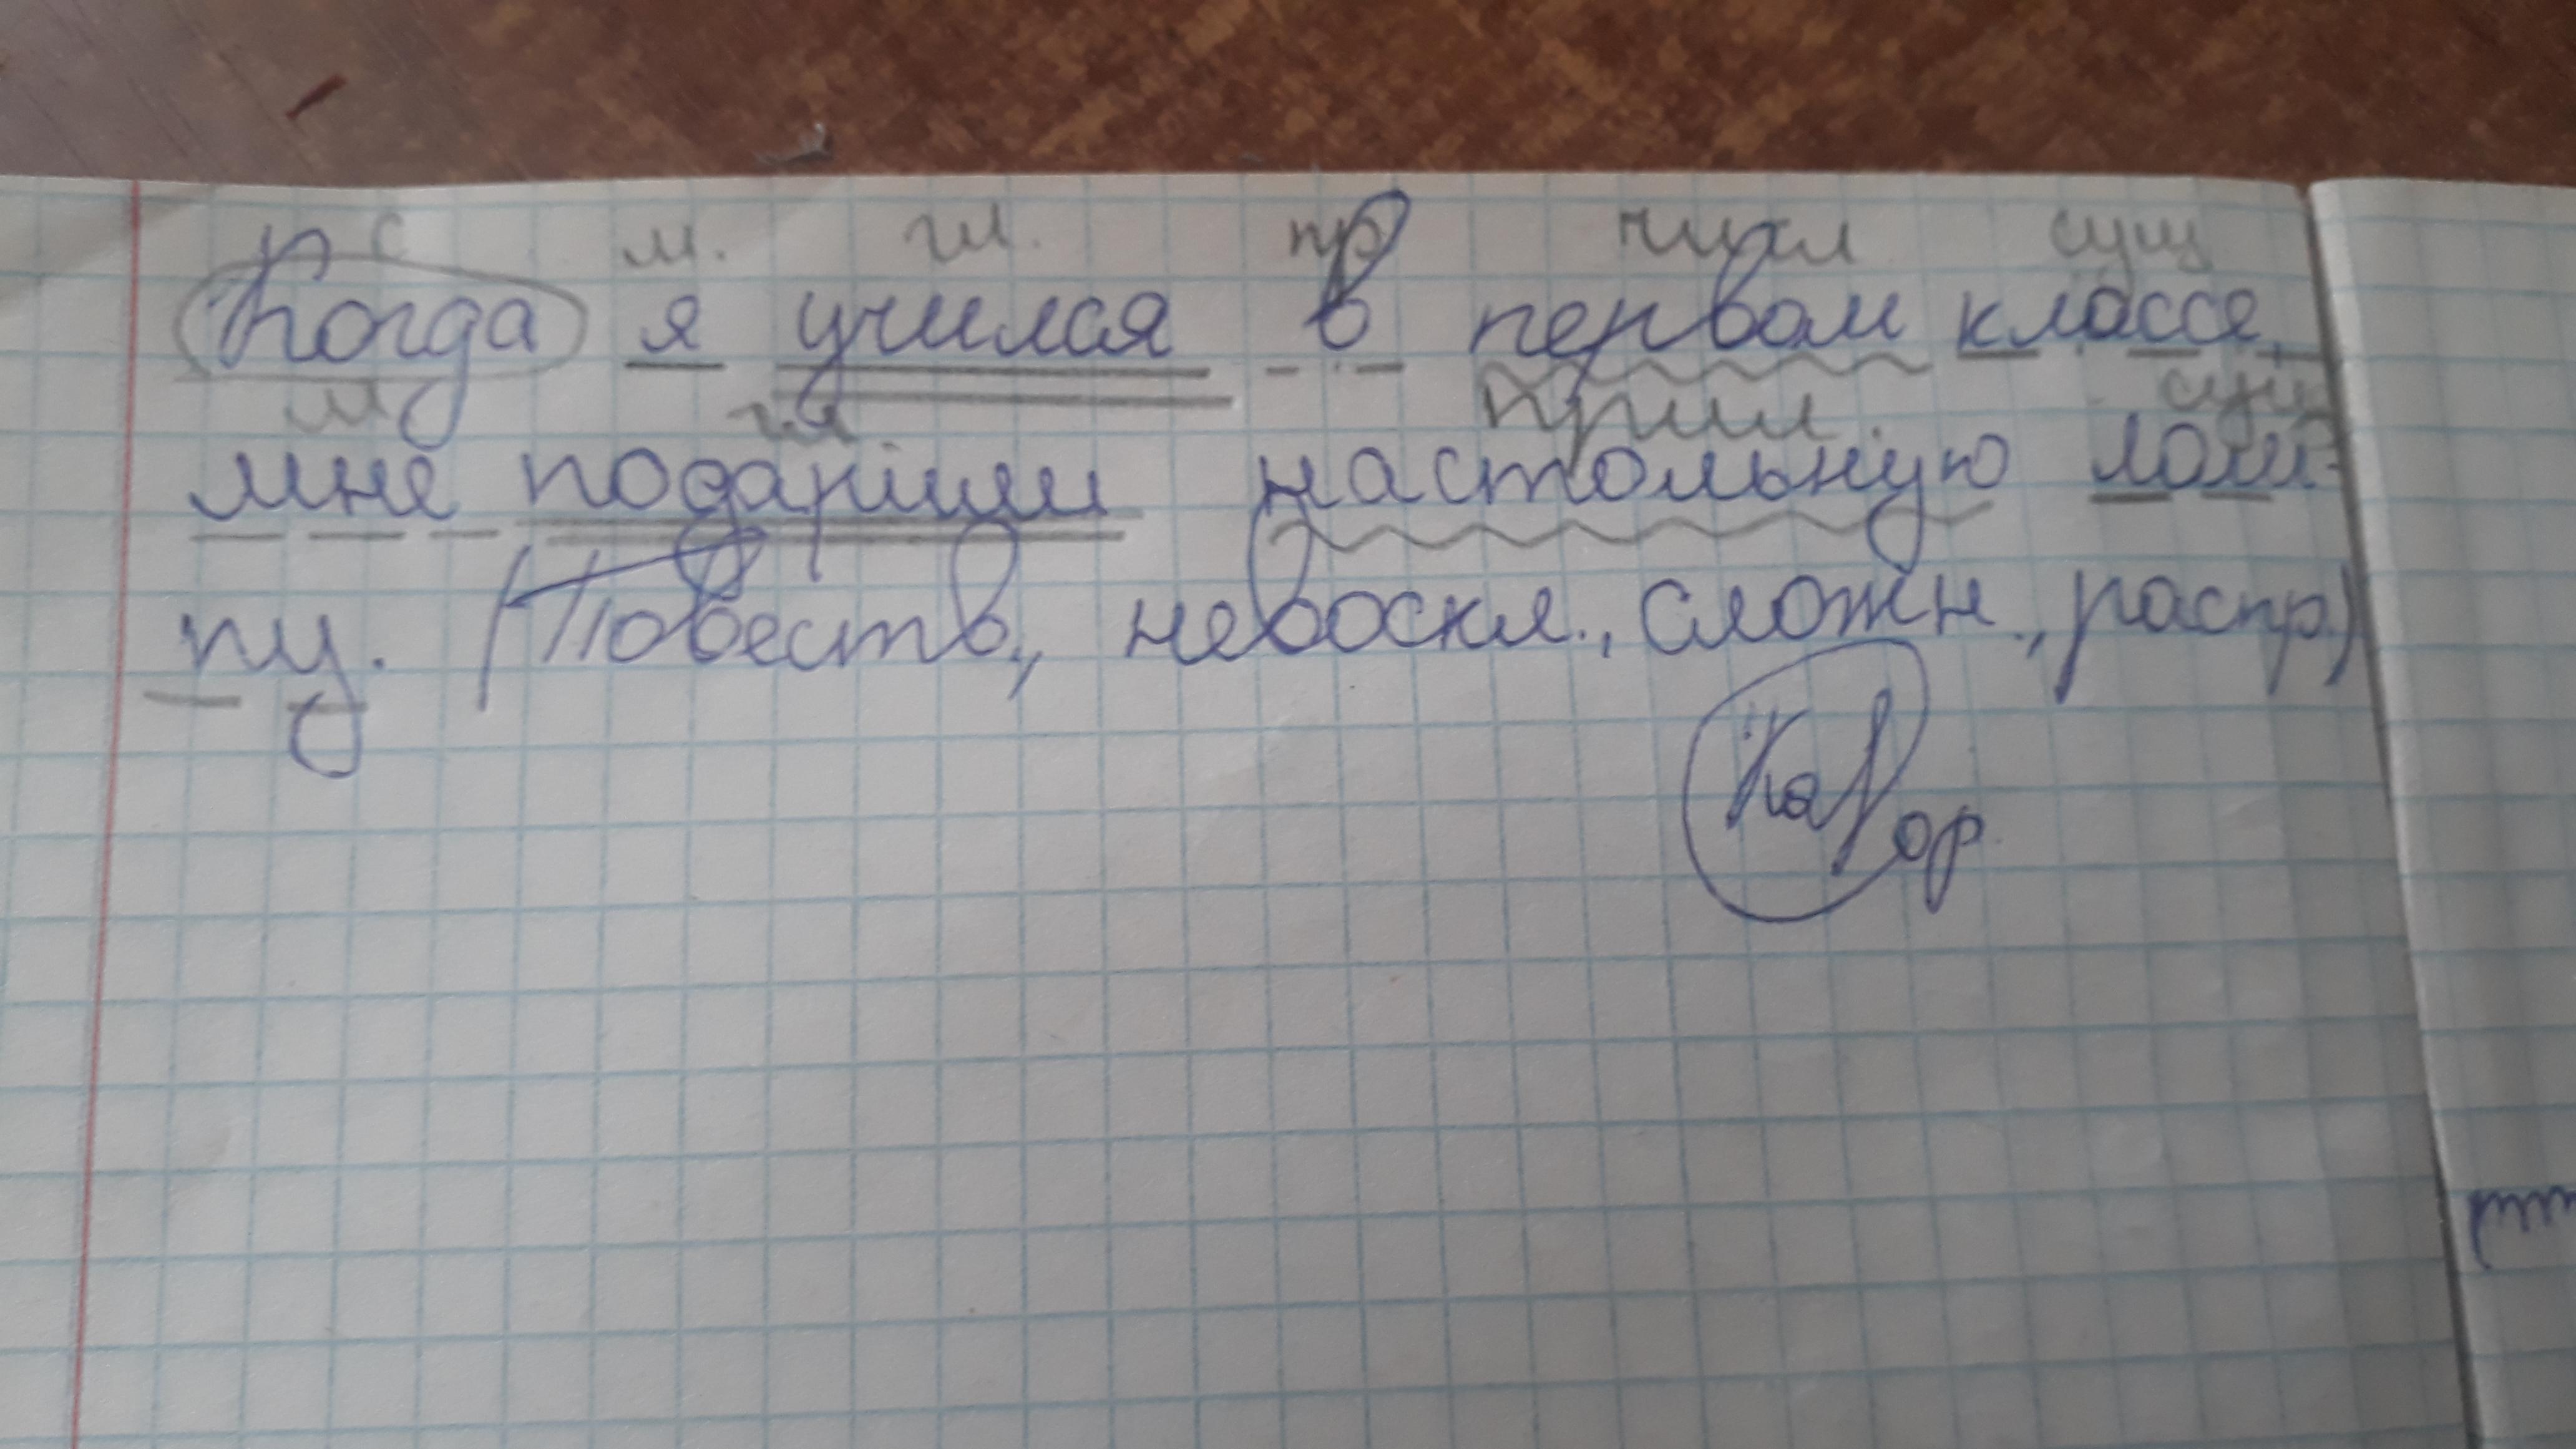 с м. гл. пр числ сущ
Когда я учился в первом классе,
м гл. прил. сущ
мне подарили настольную лам-
пу. (Повеств., невоскл., сложн., распр.)